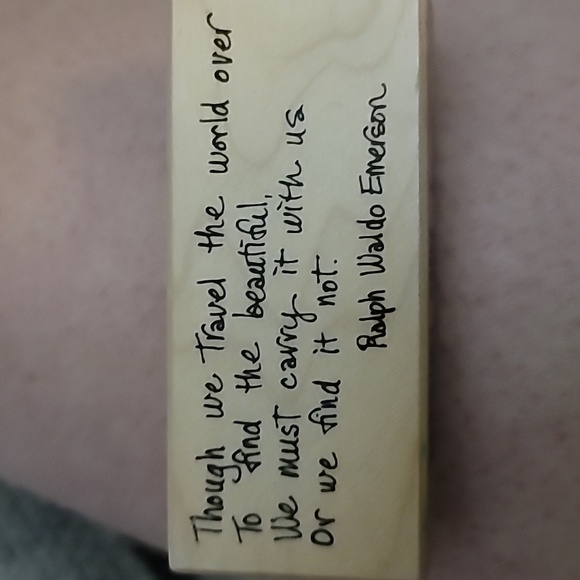 Though we Travel the world over
To find the beautiful,
We must carry it with us
Or we find it not.
Ralph Waldo Emerson